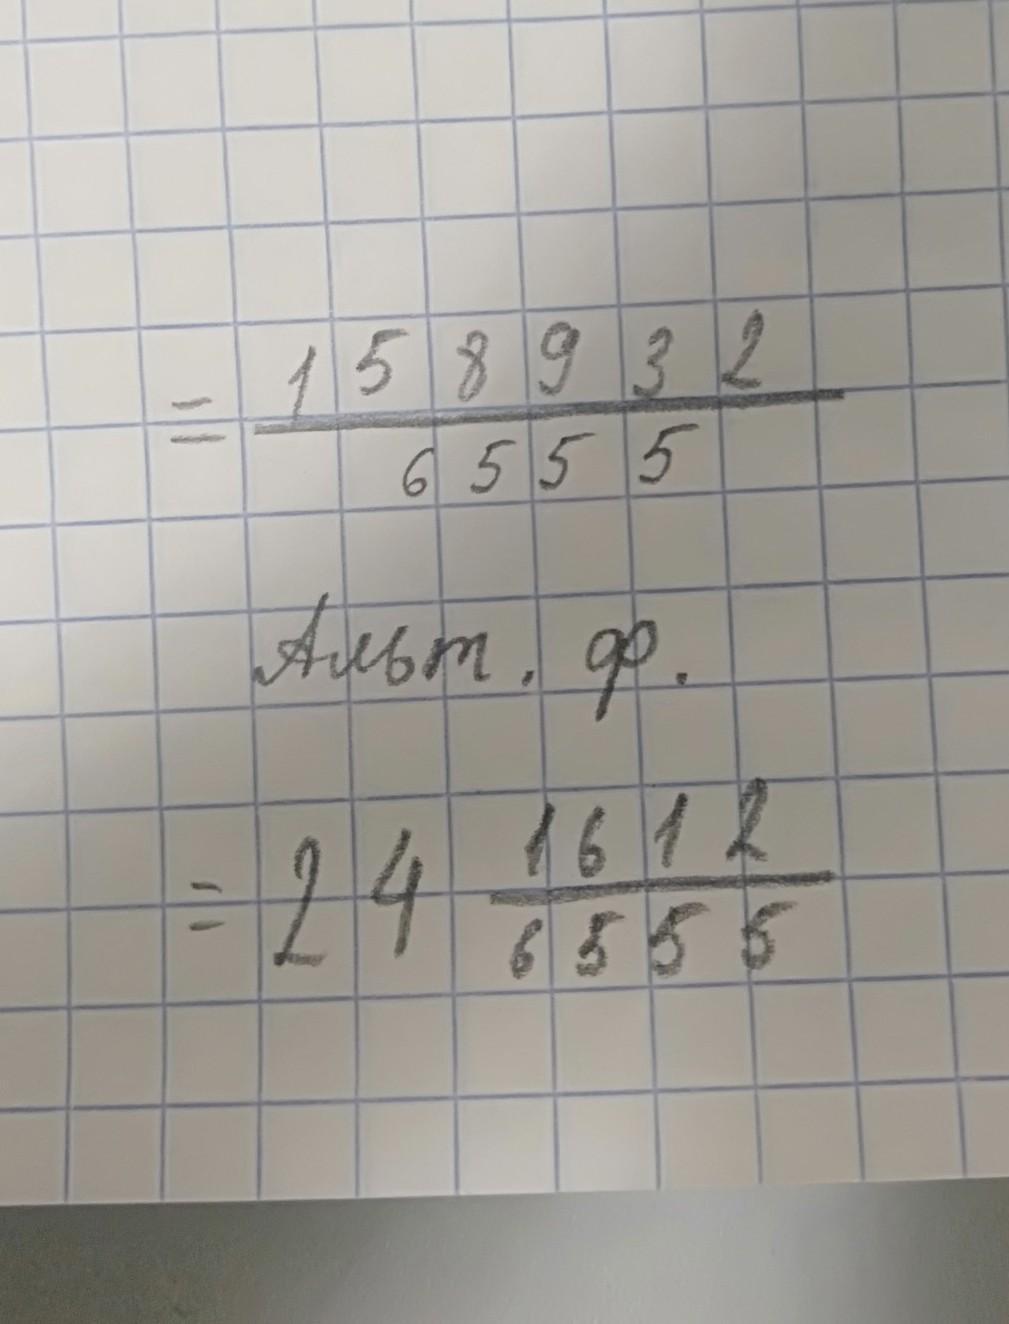 = 158932
6555
Альт. ф.
= 24 1612
6555